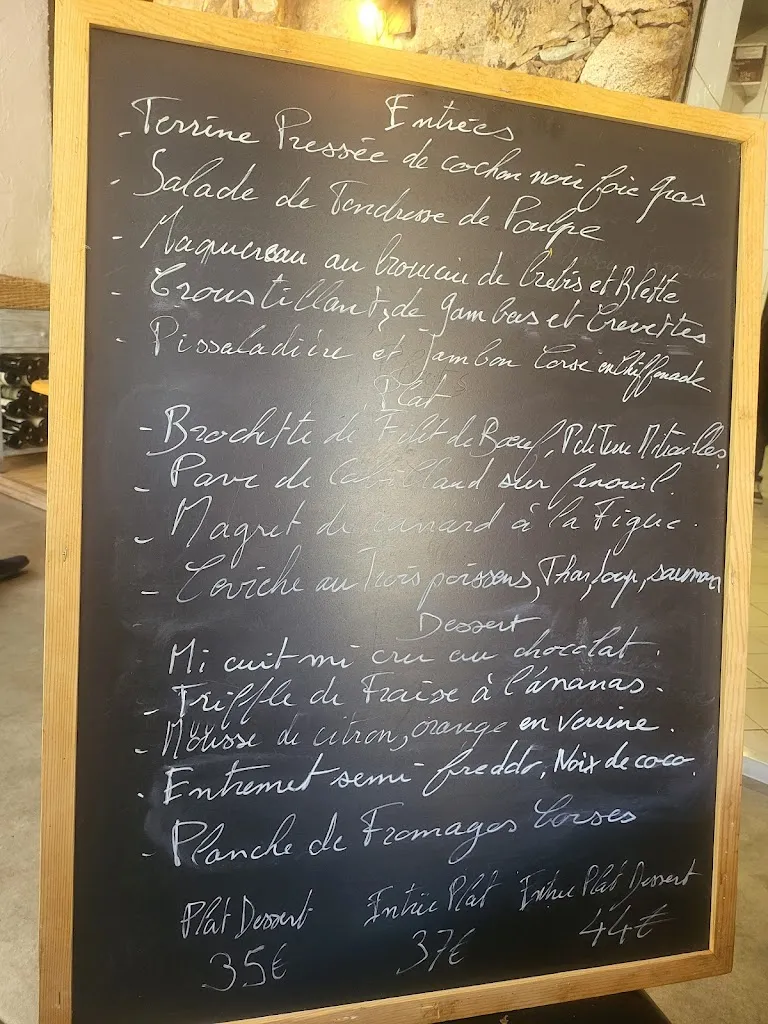 Entrées
- Terrine Pressée de cochon noir foie gras
- Salade de Tendresse de Poulpe
- Maquereau au brouciu de brebis et Blette
- Croustillant de gambas et Crevettes
- Pissaladiére et Jambon Corse en Chiffonade
Plat
- Brochette de Filet de Bœuf,
- Pavé de Cabillaud sur fenouil.
- Magret de canard à la Figue.
- Ceviche au Trois poissons, Thon, loup, saumon
Dessert
Mi cuit mi cru au chocolat.
- Triffle de Fraise à l'ananas.
- Mousse de citron, orange en Verrine.
- Entremet semi-freddo, Noix de coco.
- Planche de Fromages Corses
Plat Dessert Entrée Plat Entrée Plat Dessert
35€ 37€ 44€